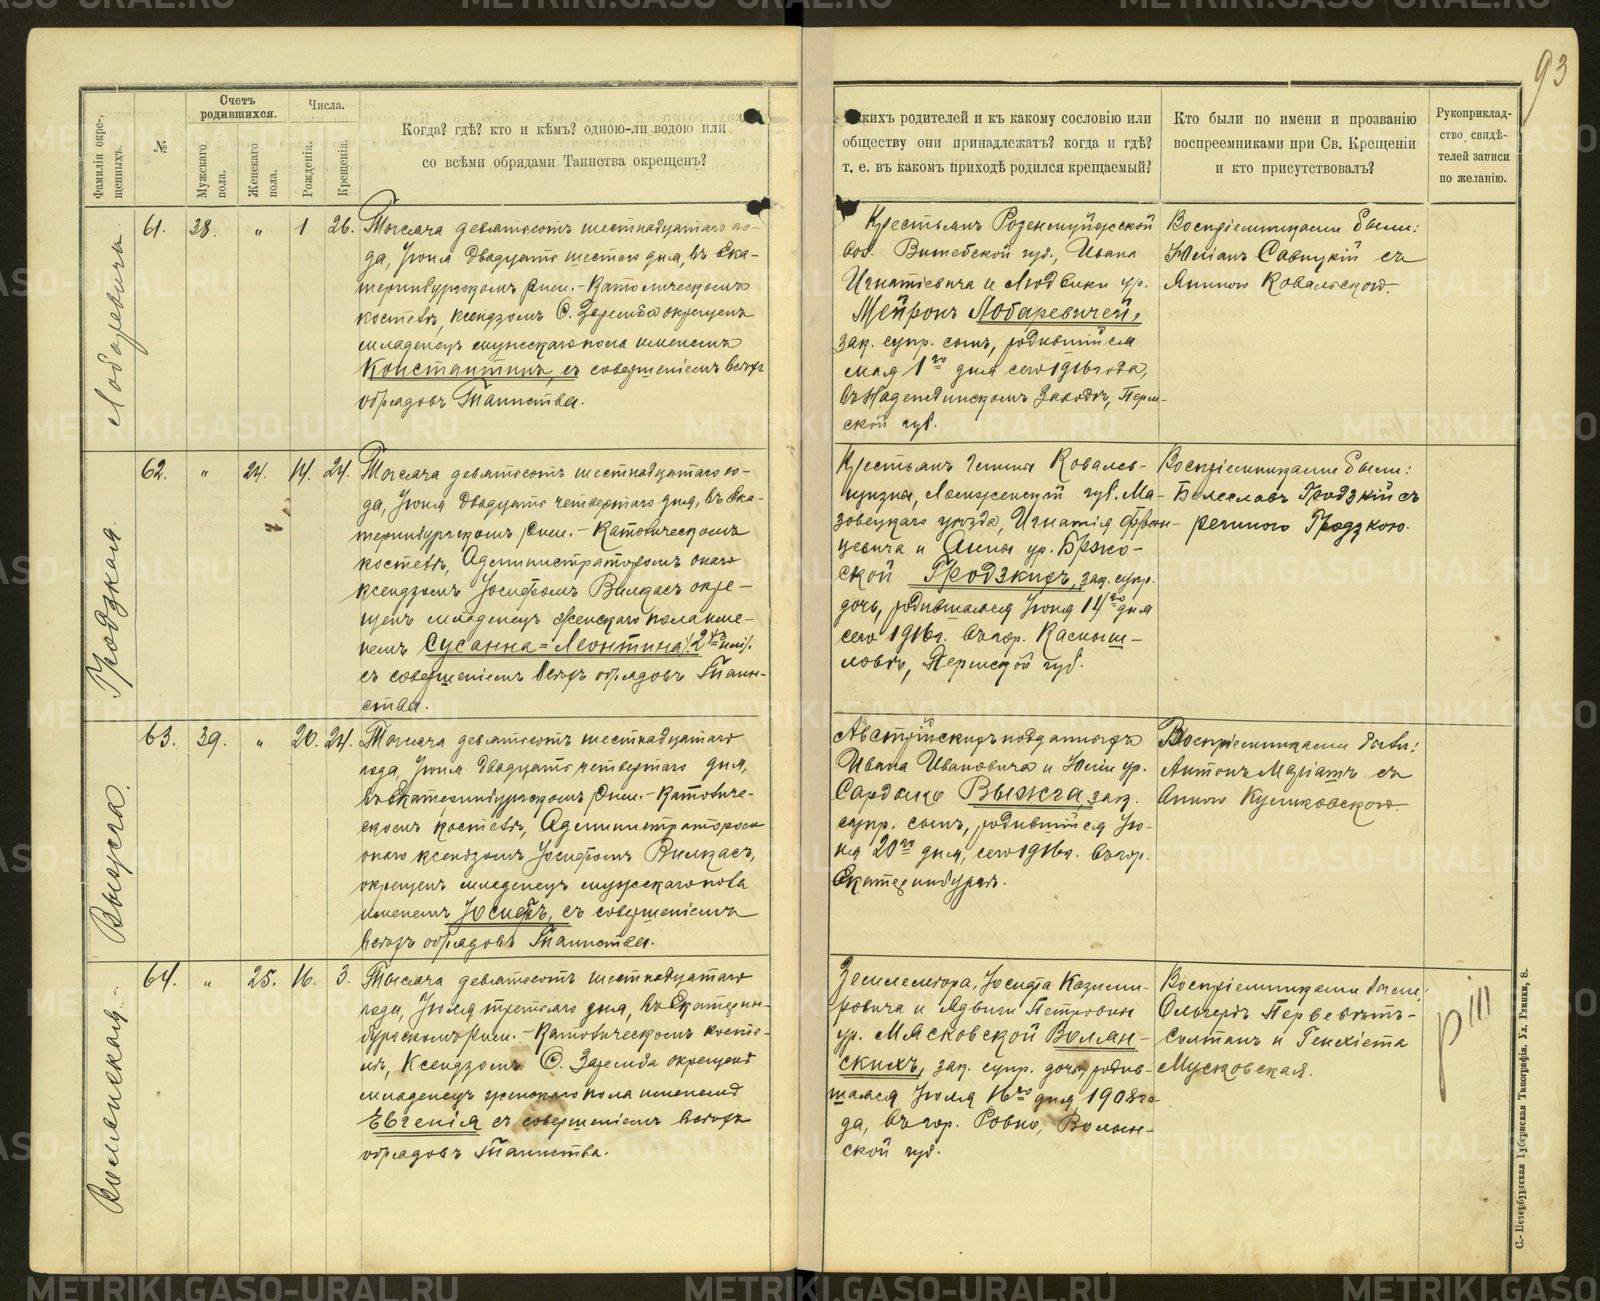 93
Фамиліи окре-
щенныхъ.
№
Счетъ
родившихся.
Мужскаго
пола.
Женскаго
пола.
Числа.
Рожденія.
Крещенія.
Когда? гдѣ? кто и кѣмъ? одною-ли водою или
со всѣми обрядами Таинства окрещенъ?
какихъ родителей и къ какому сословію или
обществу они принадлежатъ? когда и гдѣ?
т. е. въ какомъ приходѣ родился крещаемый?
Кто были по имени и прозванію
воспреемниками при Св. Крещеніи
и кто присутствовалъ?
Рукоприклад-
ство свидѣ-
телей записи
по желанію.
Лобаревичъ.
61. 38. " 1 26.
Тысяча девятьсотъ шестнадцатаго го-
да, Іюня двадцать шестого дня, въ Ека-
теринбургскомъ Рим.-Католическомъ
костелѣ, ксендзомъ С. Заремба окрещенъ
младенецъ мужескаго пола именемъ
Константинъ, съ совершеніемъ всѣхъ
обрядовъ Таинства.
Крестьянъ
вол. Витебской губ., Ивана
Игнатіевича и Людвики ур.
Мейронъ Лобаревичей,
зак. супр. сынъ, родившійся
мая 1го дня сего 1916 года,
въ Надеждинскомъ Заводѣ, Перм-
ской губ.
Воспріемниками были:
Юліанъ Савицкій съ
Яниною Ковальскою.
Гродзкая.
62. " 24. 14. 24.
Тысяча девятьсотъ шестнадцатаго го-
да, Іюня двадцать четвертаго дня, въ Ека-
теринбургскомъ Рим.-Католическомъ
костелѣ, Администраторомъ онаго
ксендзомъ Іосифомъ Вилкасъ окре-
щенъ младенецъ женскаго пола име-
немъ Сусанна=Леонтина
съ совершеніемъ всѣхъ обрядовъ Таин-
ства.
Крестьянъ гмины Ковалев-
щизна, Ломжинской губ. Ма-
зовецкаго уѣзда, Игнатія Фран-
цевича и Анны ур. Брзо-
ской Гродзкихъ, зак. супр.
дочь, родившаяся Іюня 14го дня
сего 1916 г. въ гор. Камыш-
ловѣ, Пермской губ.
Воспріемниками были:
Болеславъ Гродзкій съ
Гродзкою.
Выжга.
63. 39. " 20. 24.
Тысяча девятьсотъ шестнадцатаго
года, Іюня двадцать четвертаго дня,
въ Екатеринбургскомъ Рим.-Католиче-
скомъ костелѣ, Администраторомъ
онаго ксендзомъ Іосифомъ Вилкасъ,
окрещенъ младенецъ мужескаго пола
именемъ Іосифъ, съ совершеніемъ
всѣхъ обрядовъ Таинства.
Австрійскихъ подданныхъ
Ивана Ивановича и Юліи ур.
Выжга, зак.
супр. сынъ, родившійся Ію-
ня 20го дня, сего 1916 г. въ гор.
Екатеринбургѣ.
Воспріемниками были:
Антонъ Маріатъ съ
Анною Куликовскою.
Волянская.
64. " 25. 16. 3.
Тысяча девятьсотъ шестнадцатаго
года, Іюля третьяго дня, въ Екатерин-
бургскомъ Рим.-Католическомъ косте-
лѣ, Ксендзомъ С. Заремба окрещенъ
младенецъ женскаго пола именемъ
Евгенія съ совершеніемъ всѣхъ
обрядовъ Таинства.
Землемѣра, Іосифа Казими-
ровича и Ядвиги Петровны
ур. Мясковской Волян-
скихъ, зак. супр. дочь, родив-
шаяся Іюля 16го дня, 1908 го-
да, въ гор. Ровно, Волын-
ской губ.
Воспріемниками были:
Ольгердъ
Солтанъ и Генхіета
Мусковская.
С.-Петербургская Губернская Типографія. Ул. Глинки, 8.
METRIKI.GASO-URAL.RU